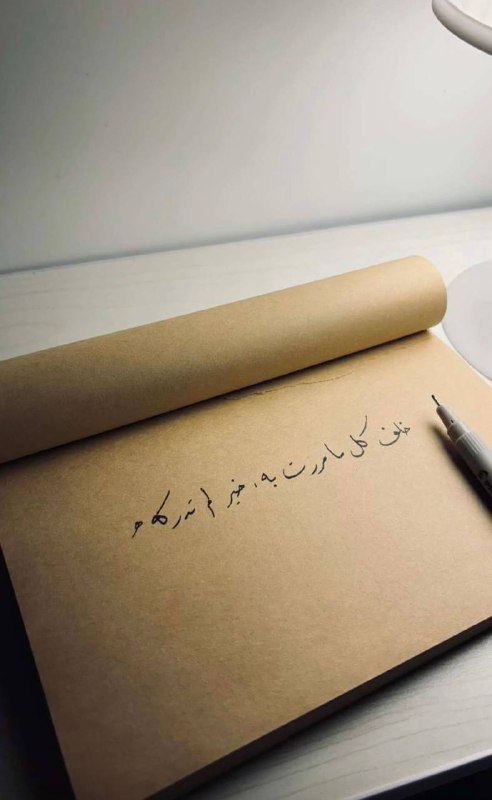 خلف كل ما مررت به، خير لم تدركه